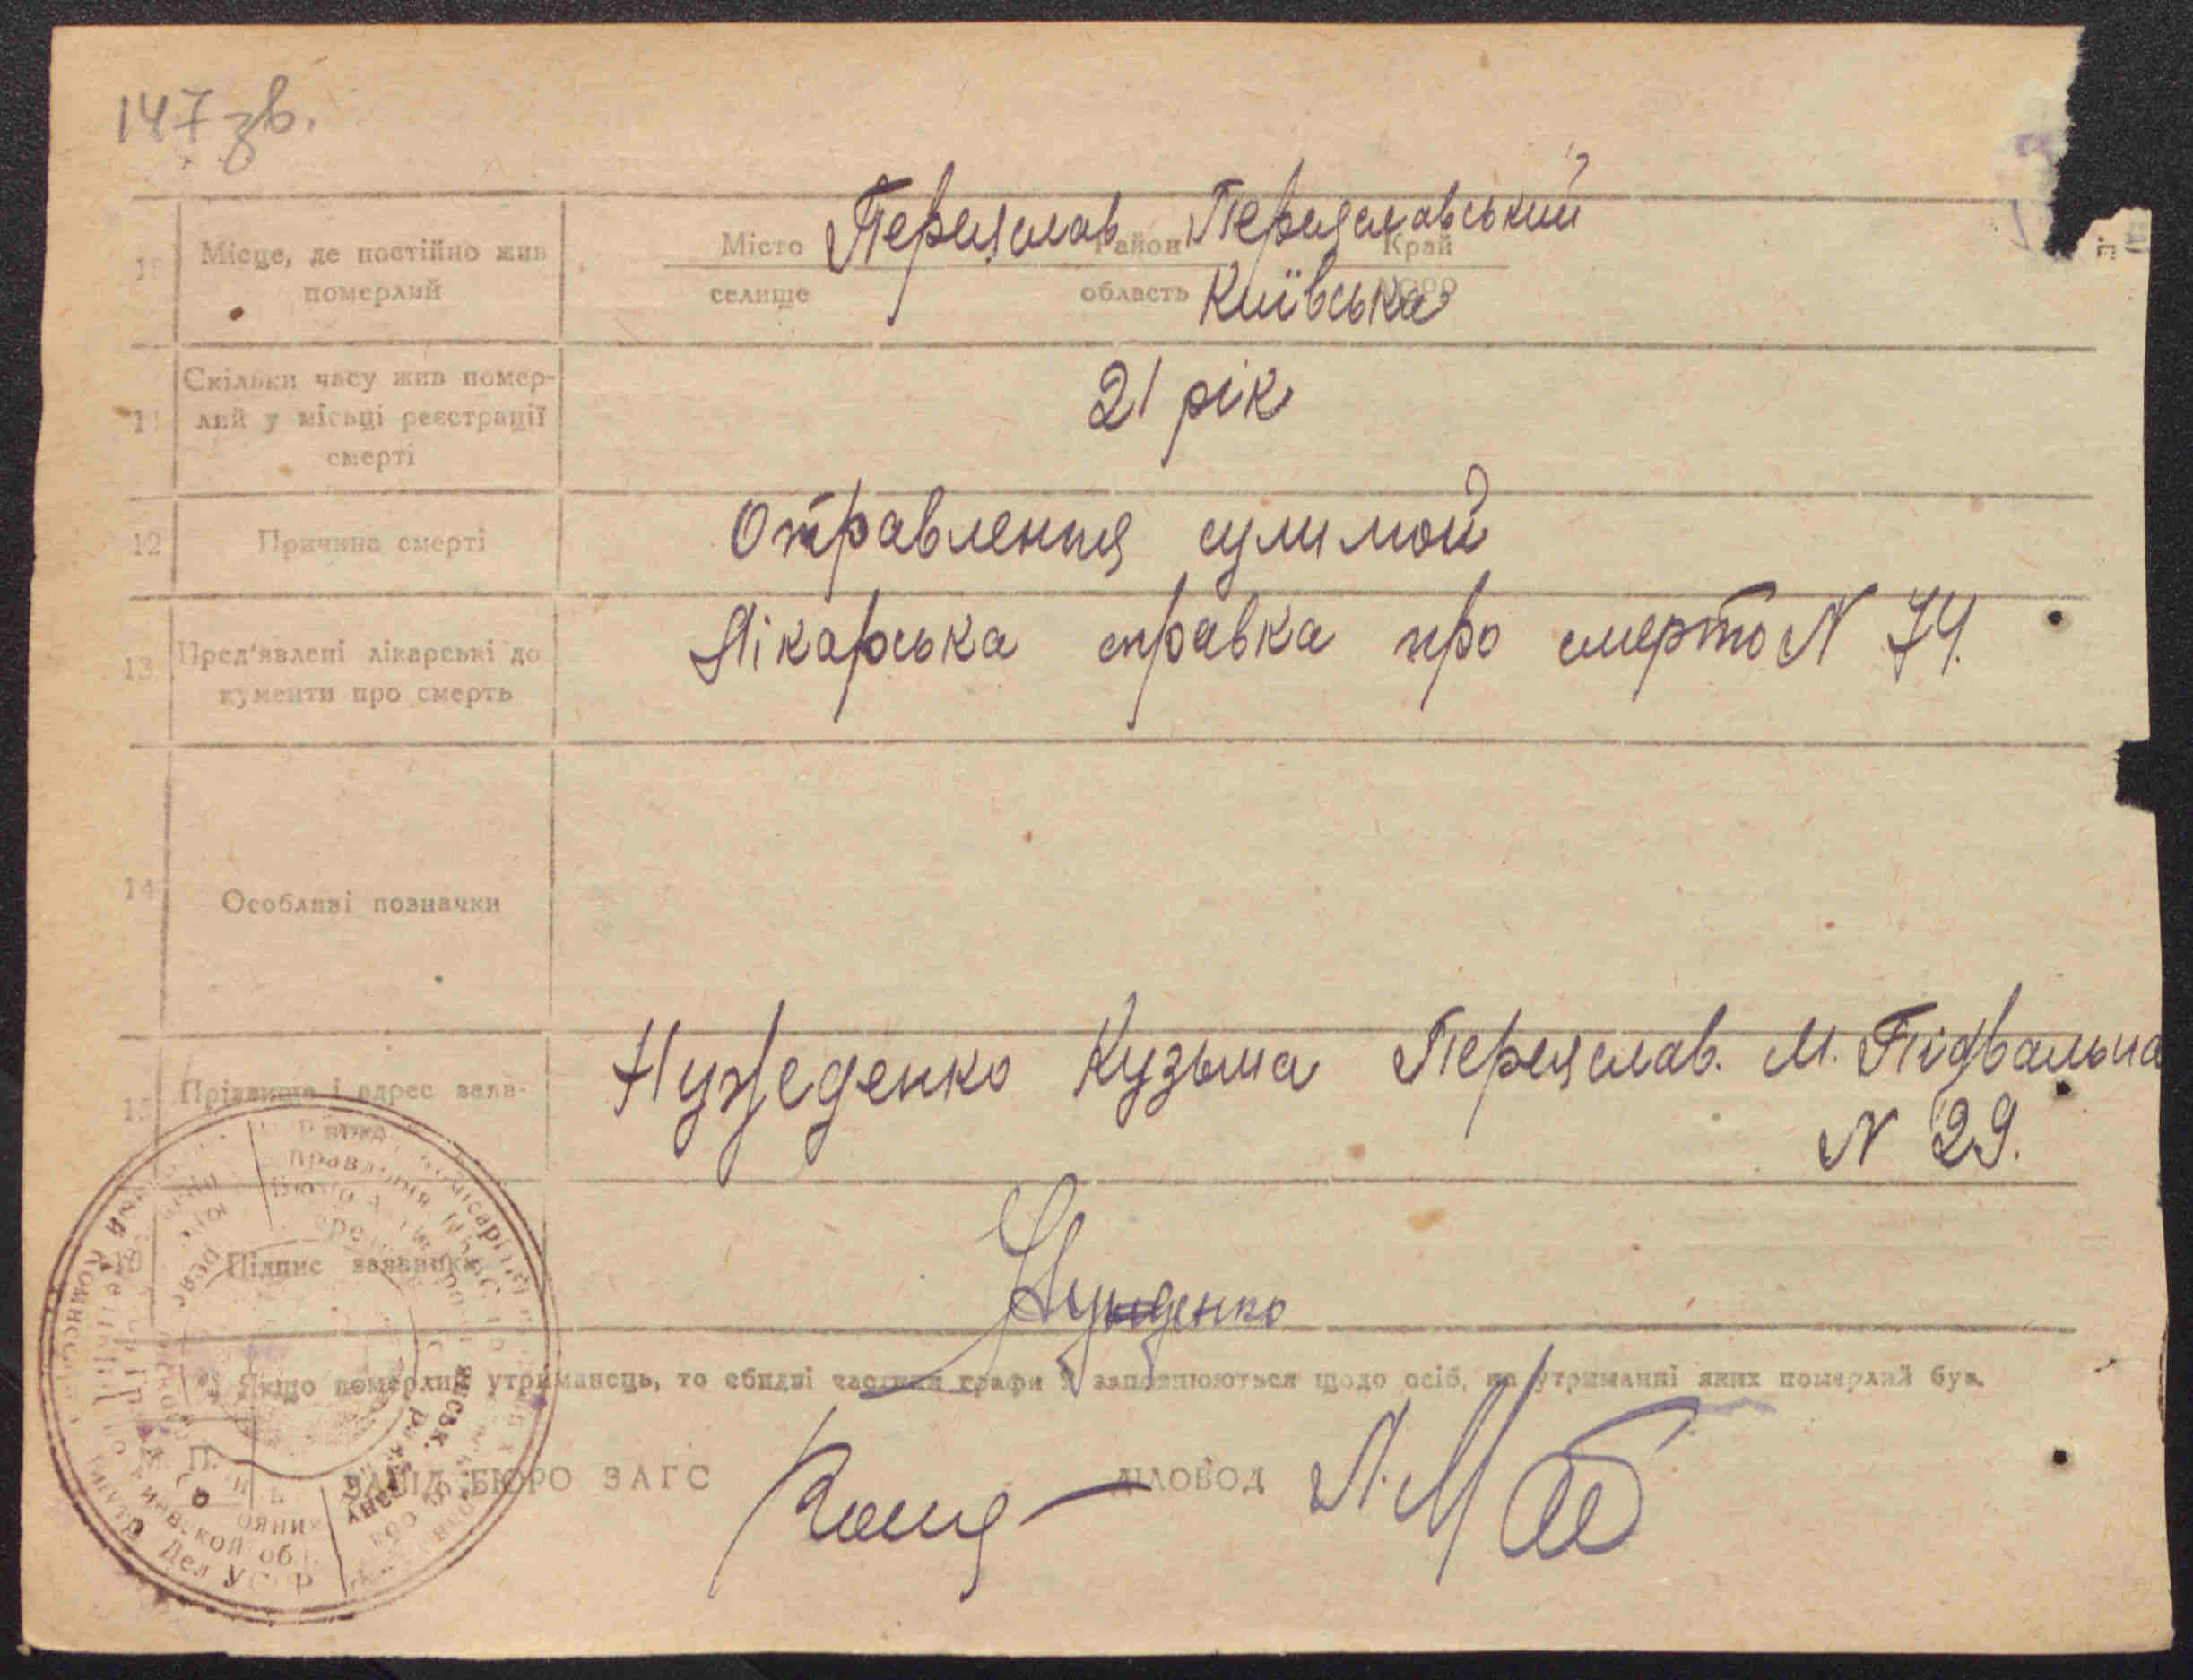 147 зв.
10 Місце, де постійно жив померлий
Місто Переяслав Район Переяславський Край
селище область Київська
11 Скільки часу жив помер-
лий у місьці реєстрації
смерті
21 рік
12 Причина смерті Отравлення сулимой
13 Пред'явлені лікарські до
кументи про смерть
Лікарська справка про смерть N 74.
14 Особливі позначки
15 Прізвище і адрес заяв-
Нужеденко Кузьма Переяслав. М. Підвальна
N 29.
16 Підпис заявника
Нужденко
Якщо померлий утриманець, то обидві частини графи заповнюються щодо осіб, на утриманні яких померлий був.
ЗАВІД. БЮРО ЗАГС ДІЛОВОД